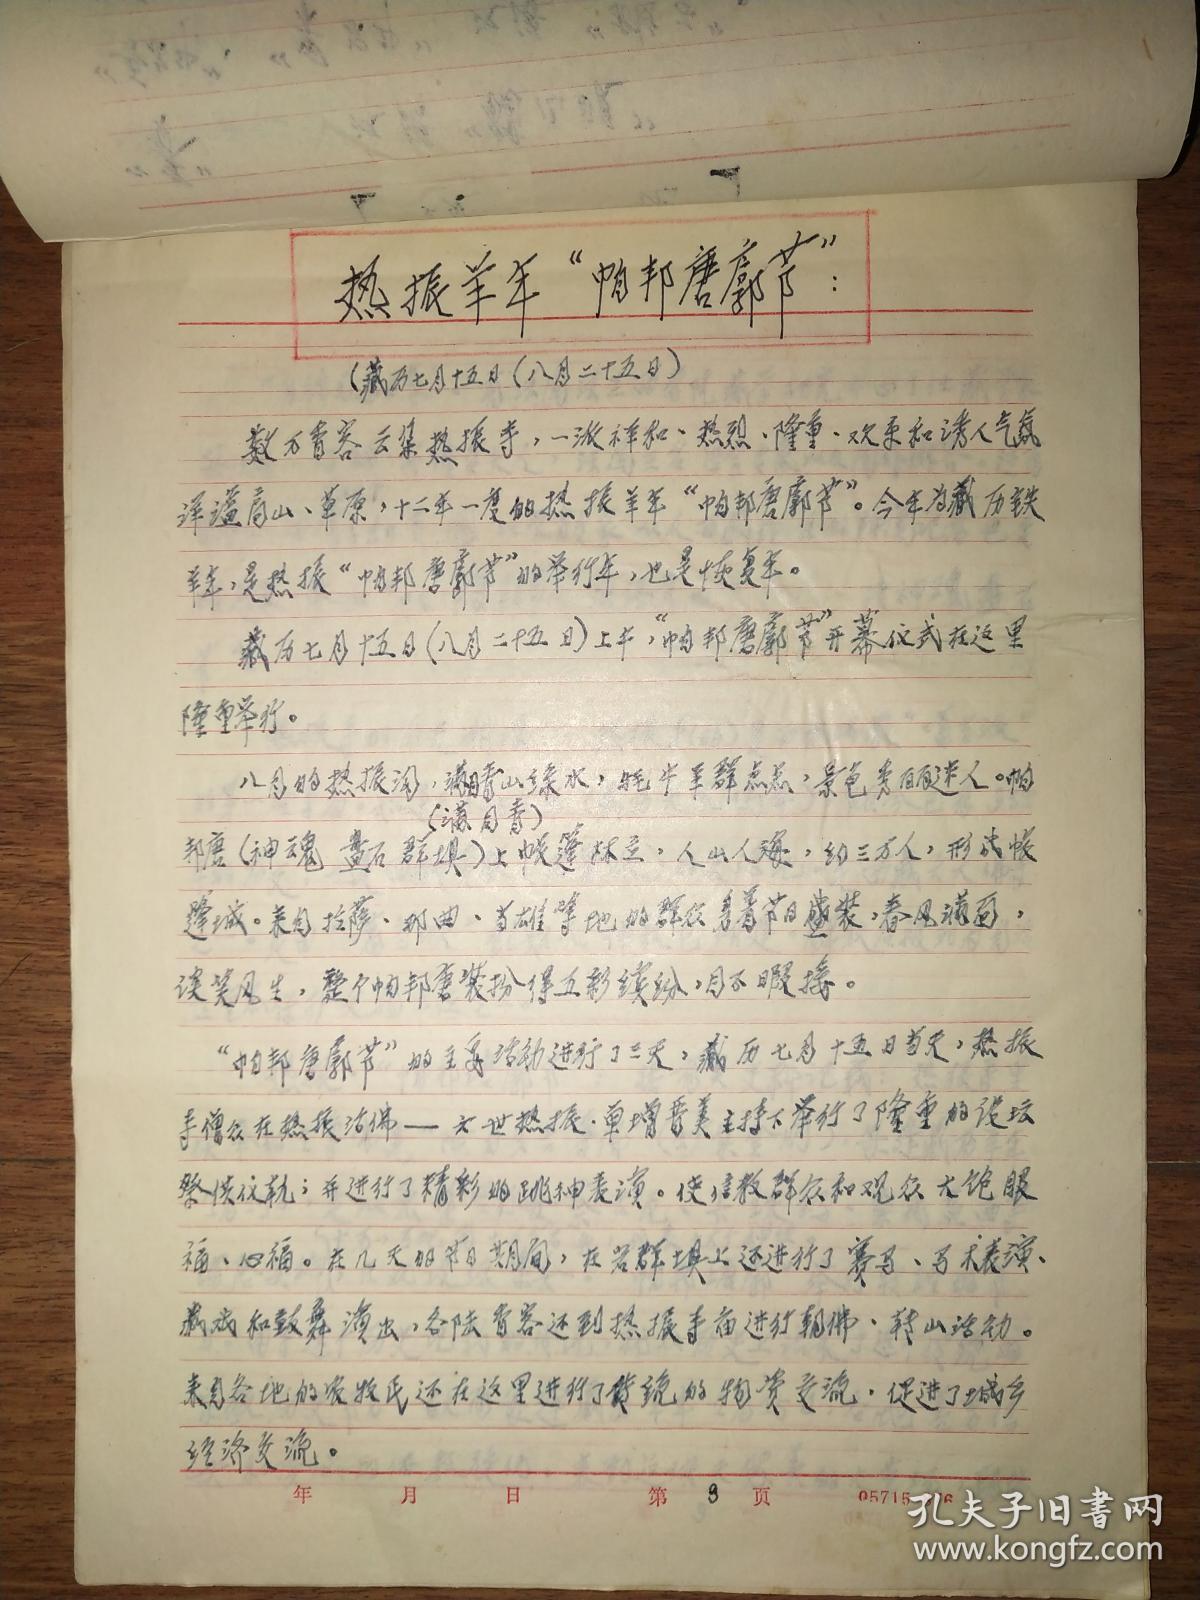 热振羊年“帕邦唐廓节”：
（藏历七月十五日（八月二十五日）
数万香客云集热振寺，一派祥和、热烈、隆重、欢乐和诱人气氛
洋溢高山、草原，十二年一度的热振羊年“帕邦唐廓节”。今年为藏历铁
羊年，是热振“帕邦唐廓节”的举行年，也是恢复年。
藏历七月十五日（八月二十五日）上午，“帕邦唐廓节”开幕仪式在这里
隆重举行。
八月的热振沟，满目青山绿水，牦牛羊群点点，景色秀丽迷人。帕
（满目青）
邦唐（神魂 盘石群坝）上帐篷林立，人山人海，约三万人，形成帐
篷城。来自拉萨、那曲、当雄等地的群众身着节日盛装，春风满面，
谈笑风生，整个帕邦唐装扮得五彩缤纷，目不暇接。
“帕邦唐廓节”的主要活动进行了三天，藏历七月十五日当天，热振
寺僧众在热振活佛——六世热振·单增晋美主持下举行了隆重的设坛
祭供仪轨；并进行了精彩的跳神表演。使信教群众和观众大饱眼
福、心福。在几天的节日期间，在岩群坝上还进行了赛马、马术表演、
藏戏和鼓舞演出，各陆香客还到热振寺庙进行朝佛、转山活动。
来自各地的农牧民还在这里进行了传统的物资交流，促进了城乡
经济交流。
年 月 日 第 3 页 05715
孔夫子旧书网
www.kongfz.com